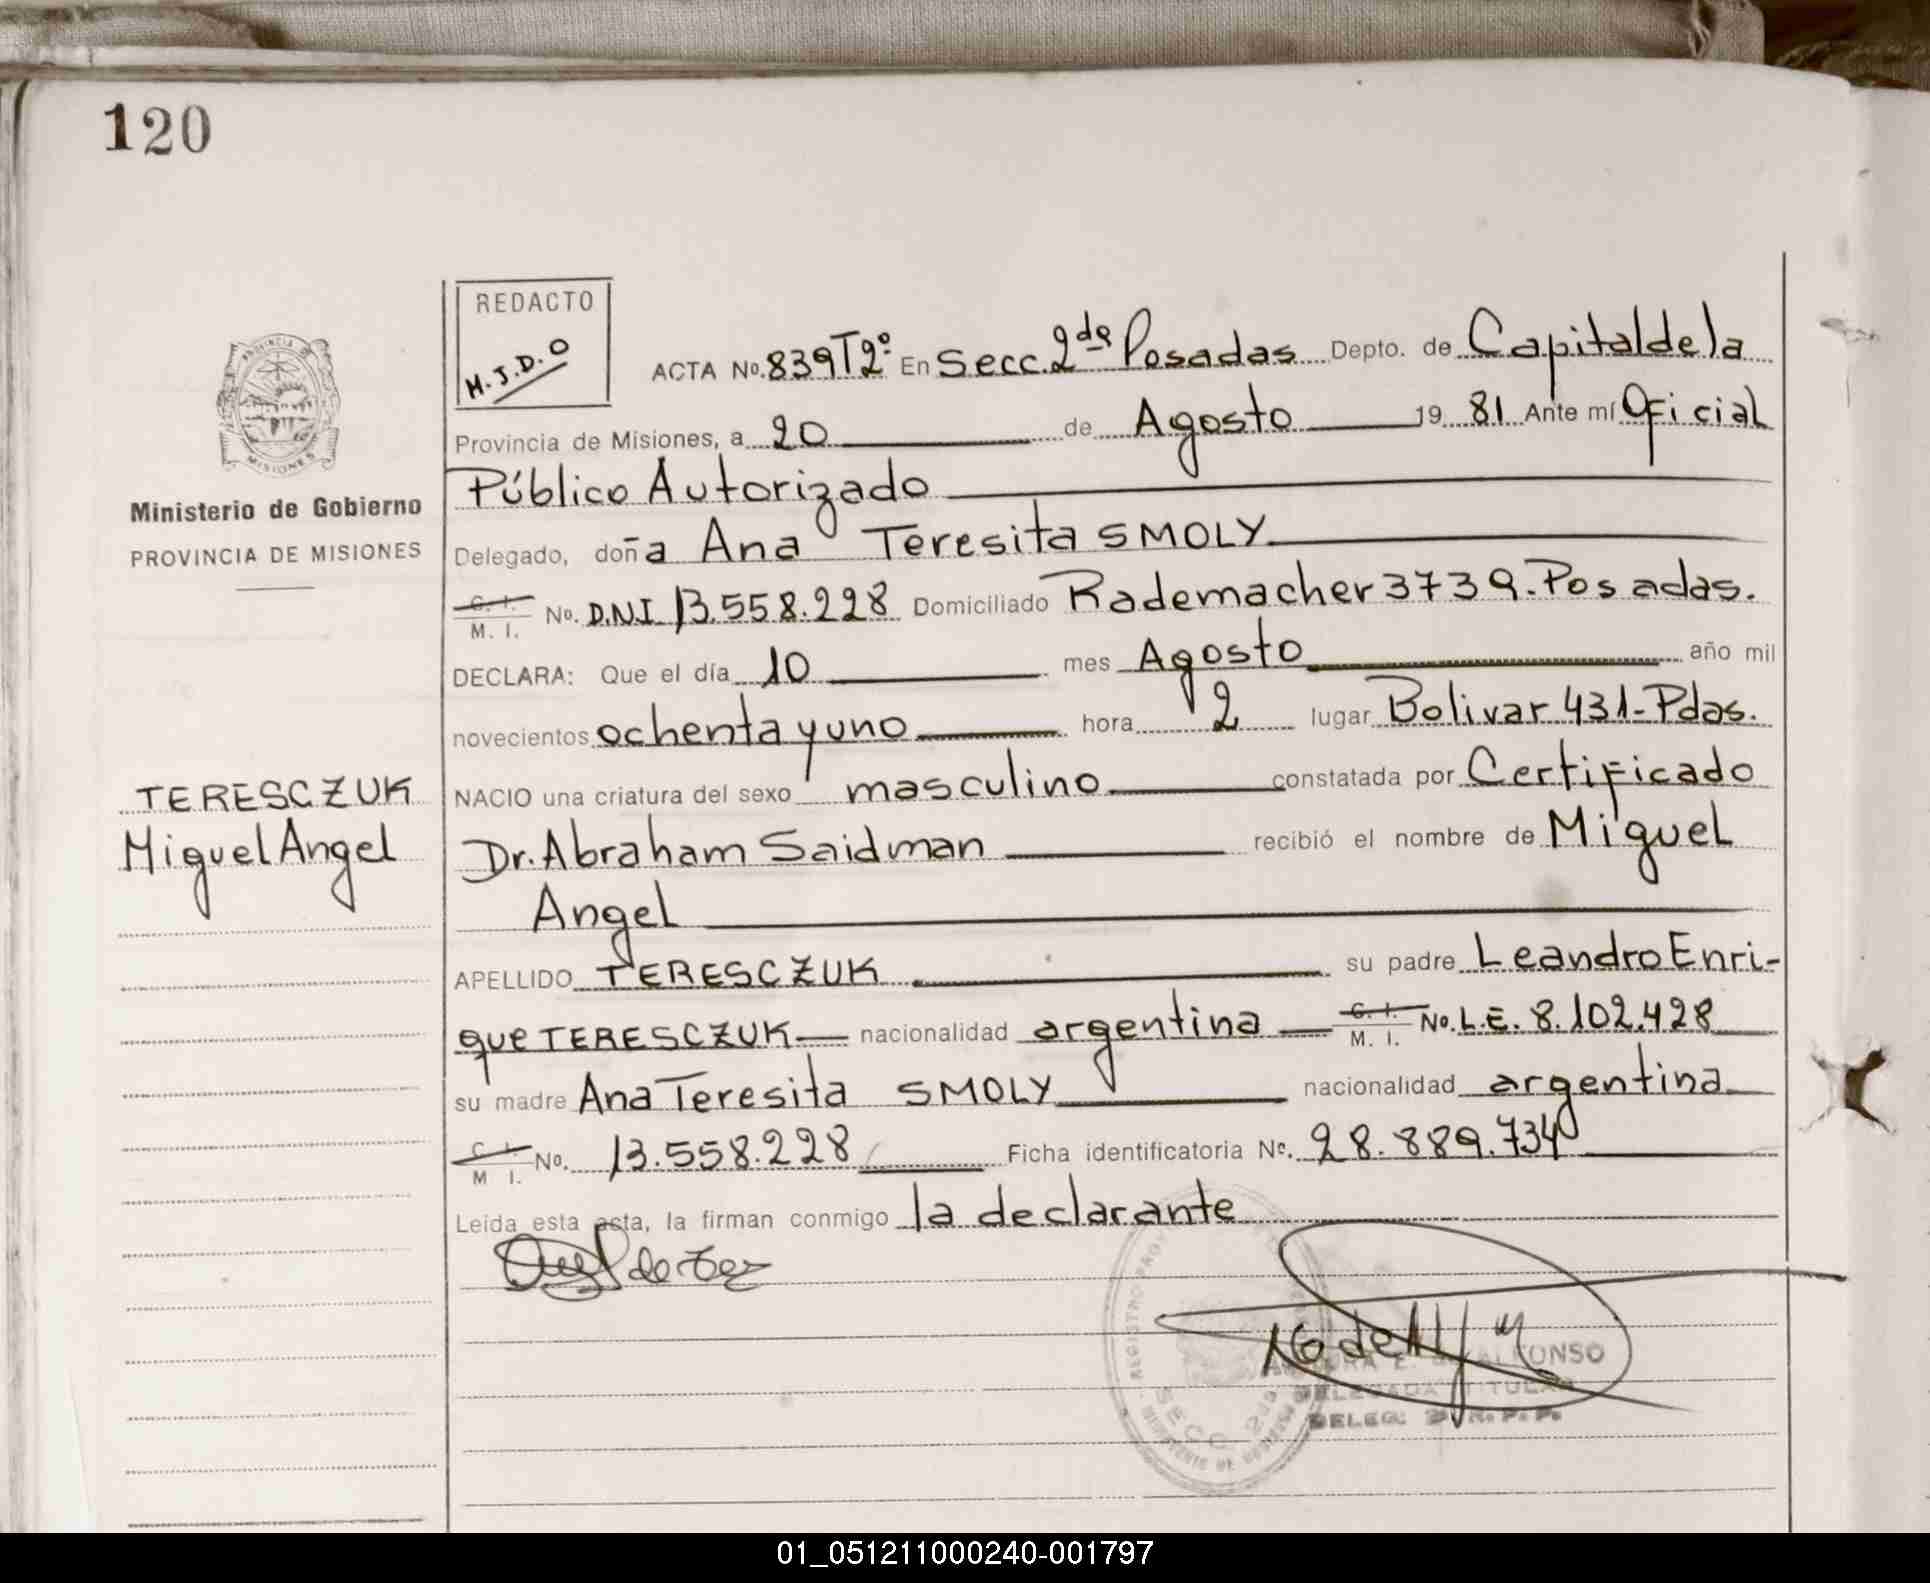 120
REDACTO
M.J.D.O
ACTA No. 839 Tº2 En Secc. 2da Posadas Depto. de Capital de la
Provincia de Misiones, a 20 de Agosto 19 81 Ante mí Oficial
Público Autorizado
Delegado, doña Ana Teresita SMOLY
C. I.
M. I. No. D.N.I 13.558.228 Domiciliado Rademacher 3739.-Posadas.
DECLARA: Que el día 10 mes Agosto año mil
novecientos ochenta y uno hora 2 lugar Bolivar 431-Pdas.
NACIO una criatura del sexo masculino constatada por Certificado
Dr. Abraham Saidman recibió el nombre de Miguel
Angel
APELLIDO TERESCZUK su padre Leandro Enri-
que TERESCZUK nacionalidad argentina C. I. M. I. No. L.E. 8.102.428
su madre Ana Teresita SMOLY nacionalidad argentina
C. I.
M I. No. 13.558.228 Ficha identificatoria No. 28.889.734
Leida esta acta, la firman conmigo la declarante
PROVINCIA DE
MISIONES
Ministerio de Gobierno
PROVINCIA DE MISIONES
TERESCZUK
Miguel Angel
SECC. 2da
ALFONSO
DELEGADA TITULAR
DELEG. 2ª R. P. P.
01_051211000240-001797